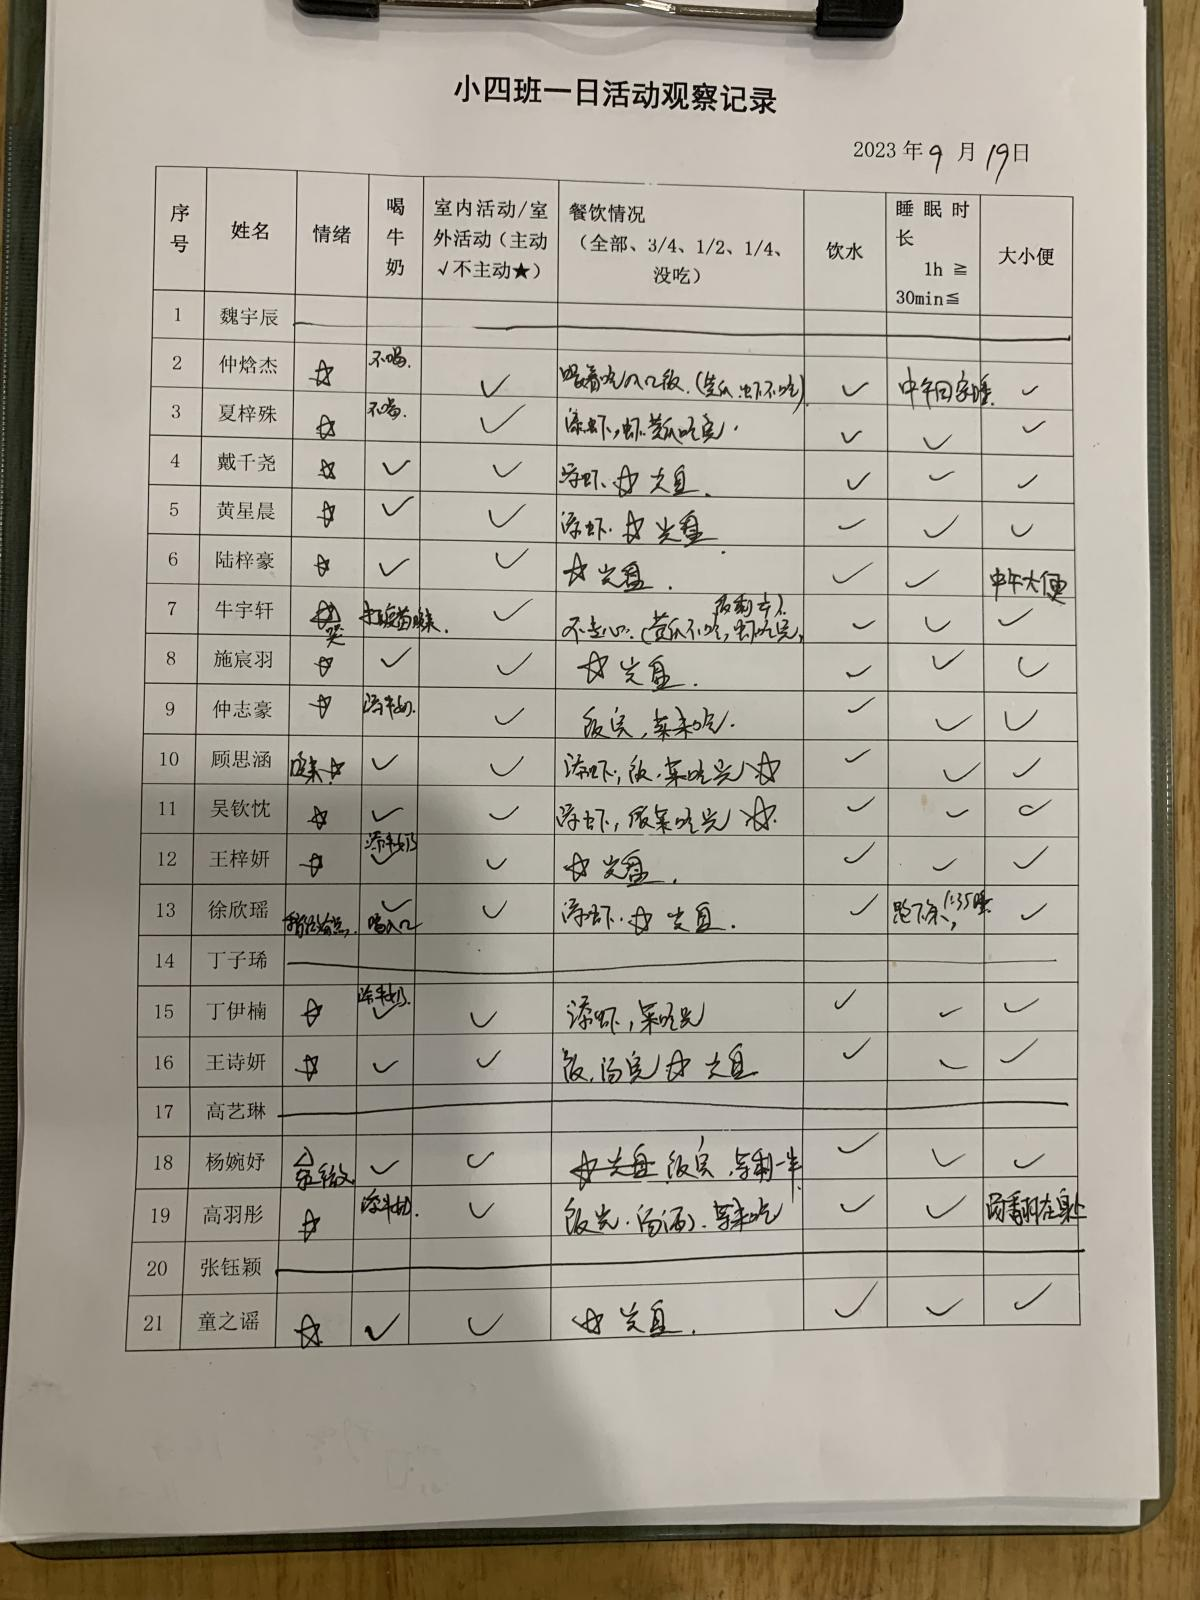 小四班一日活动观察记录
2023 年 9 月 19 日
序号 姓名 情绪 喝牛奶 室内活动/室外活动（主动√不主动★） 餐饮情况（全部、3/4、1/2、1/4、没吃） 饮水 睡眠时长 1h ≧ 30min≦ 大小便
1 魏宇辰
2 仲焓杰 ☆ 不喝. ✓ 喂着吃几口饭.(黄瓜.虾不吃) ✓ 中午回家睡. ✓
3 夏梓殊 ☆ 不喝. ✓ 添虾,虾.黄瓜吃完. ✓ ✓ ✓
4 戴千尧 ☆ ✓ ✓ 添虾. ☆ 光盘. ✓ ✓ ✓
5 黄星晨 ☆ ✓ ✓ 添虾. ☆ 光盘. ✓ ✓ ✓
6 陆梓豪 ☆ ✓ ✓ ☆ 光盘. ✓ ✓ 中午大便
7 牛宇轩 哭 ✓ 不专心.(黄瓜不吃,虾吃完, ✓ ✓ ✓
8 施宸羽 ☆ ✓ ✓ ☆ 光盘. ✓ ✓ ✓
9 仲志豪 ☆ 添牛奶. ✓ 饭完,菜未吃. ✓ ✓ ✓
10 顾思涵 ☆ ✓ ✓ 添虾,饭.菜吃光 ☆ ✓ ✓ ✓
11 吴钦忱 ☆ ✓ ✓ 添虾,饭菜吃光 ☆. ✓ ✓ ✓
12 王梓妍 ☆ 添牛奶 ✓ ✓ ☆ 光盘. ✓ ✓ ✓
13 徐欣瑶 ✓ 喝几口 ✓ 添虾. ☆ 光盘. ✓ 1:35睡 ✓
14 丁子琋
15 丁伊楠 ☆ 添牛奶. ✓ ✓ 添虾,菜吃光 ✓ ✓ ✓
16 王诗妍 ☆ ✓ ✓ 饭.汤完 ☆ 光盘 ✓ ✓ ✓
17 高艺琳
18 杨婉妤 △ ✓ ✓ ☆ 光盘 饭完.剩一半 ✓ ✓ ✓
19 高羽彤 ☆ 添牛奶. ✓ 饭光.汤洒).菜未吃 ✓ ✓ 汤翻在身上
20 张钰颖
21 童之谣 ☆ ✓ ✓ ☆ 光盘. ✓ ✓ ✓